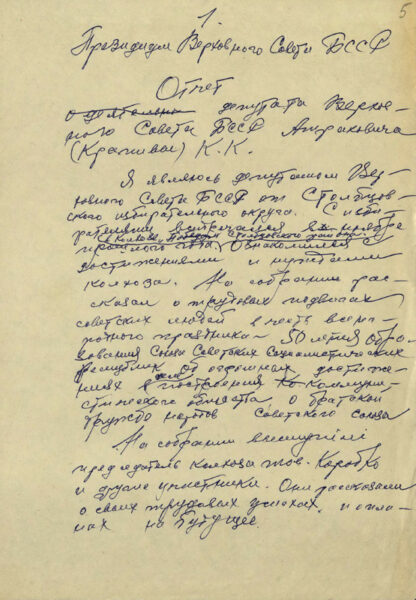 1.
5
Президиум Верховного Совета БССР
Отчет
о деятельн депутата Верхов-
ного Совета БССР Атраховича
(Крапивы) К.К.
Я являюсь депутатом Вер-
ховного Совета БССР от Столбцов-
ского избирательного округа. С изби-
рателями встречался в ноябре
в колхозе Столбцовского района
прошлого года. Ознакомился с
достижениями и нуждами
колхоза. На собрании рас-
сказал о трудовых подвигах
советских людей в честь всена-
родного праздника – 50-летия обра-
зования Союза Советских Социалистических
Республик, об огромных достиже-
ниях в построении коммуни-
стического общества, о братской
дружбе народов Советского Союза
На собрании выступили
председатель колхоза тов. Коробко
и другие участники. Они рассказали
о своих трудовых успехах и пла-
нах на будущее.